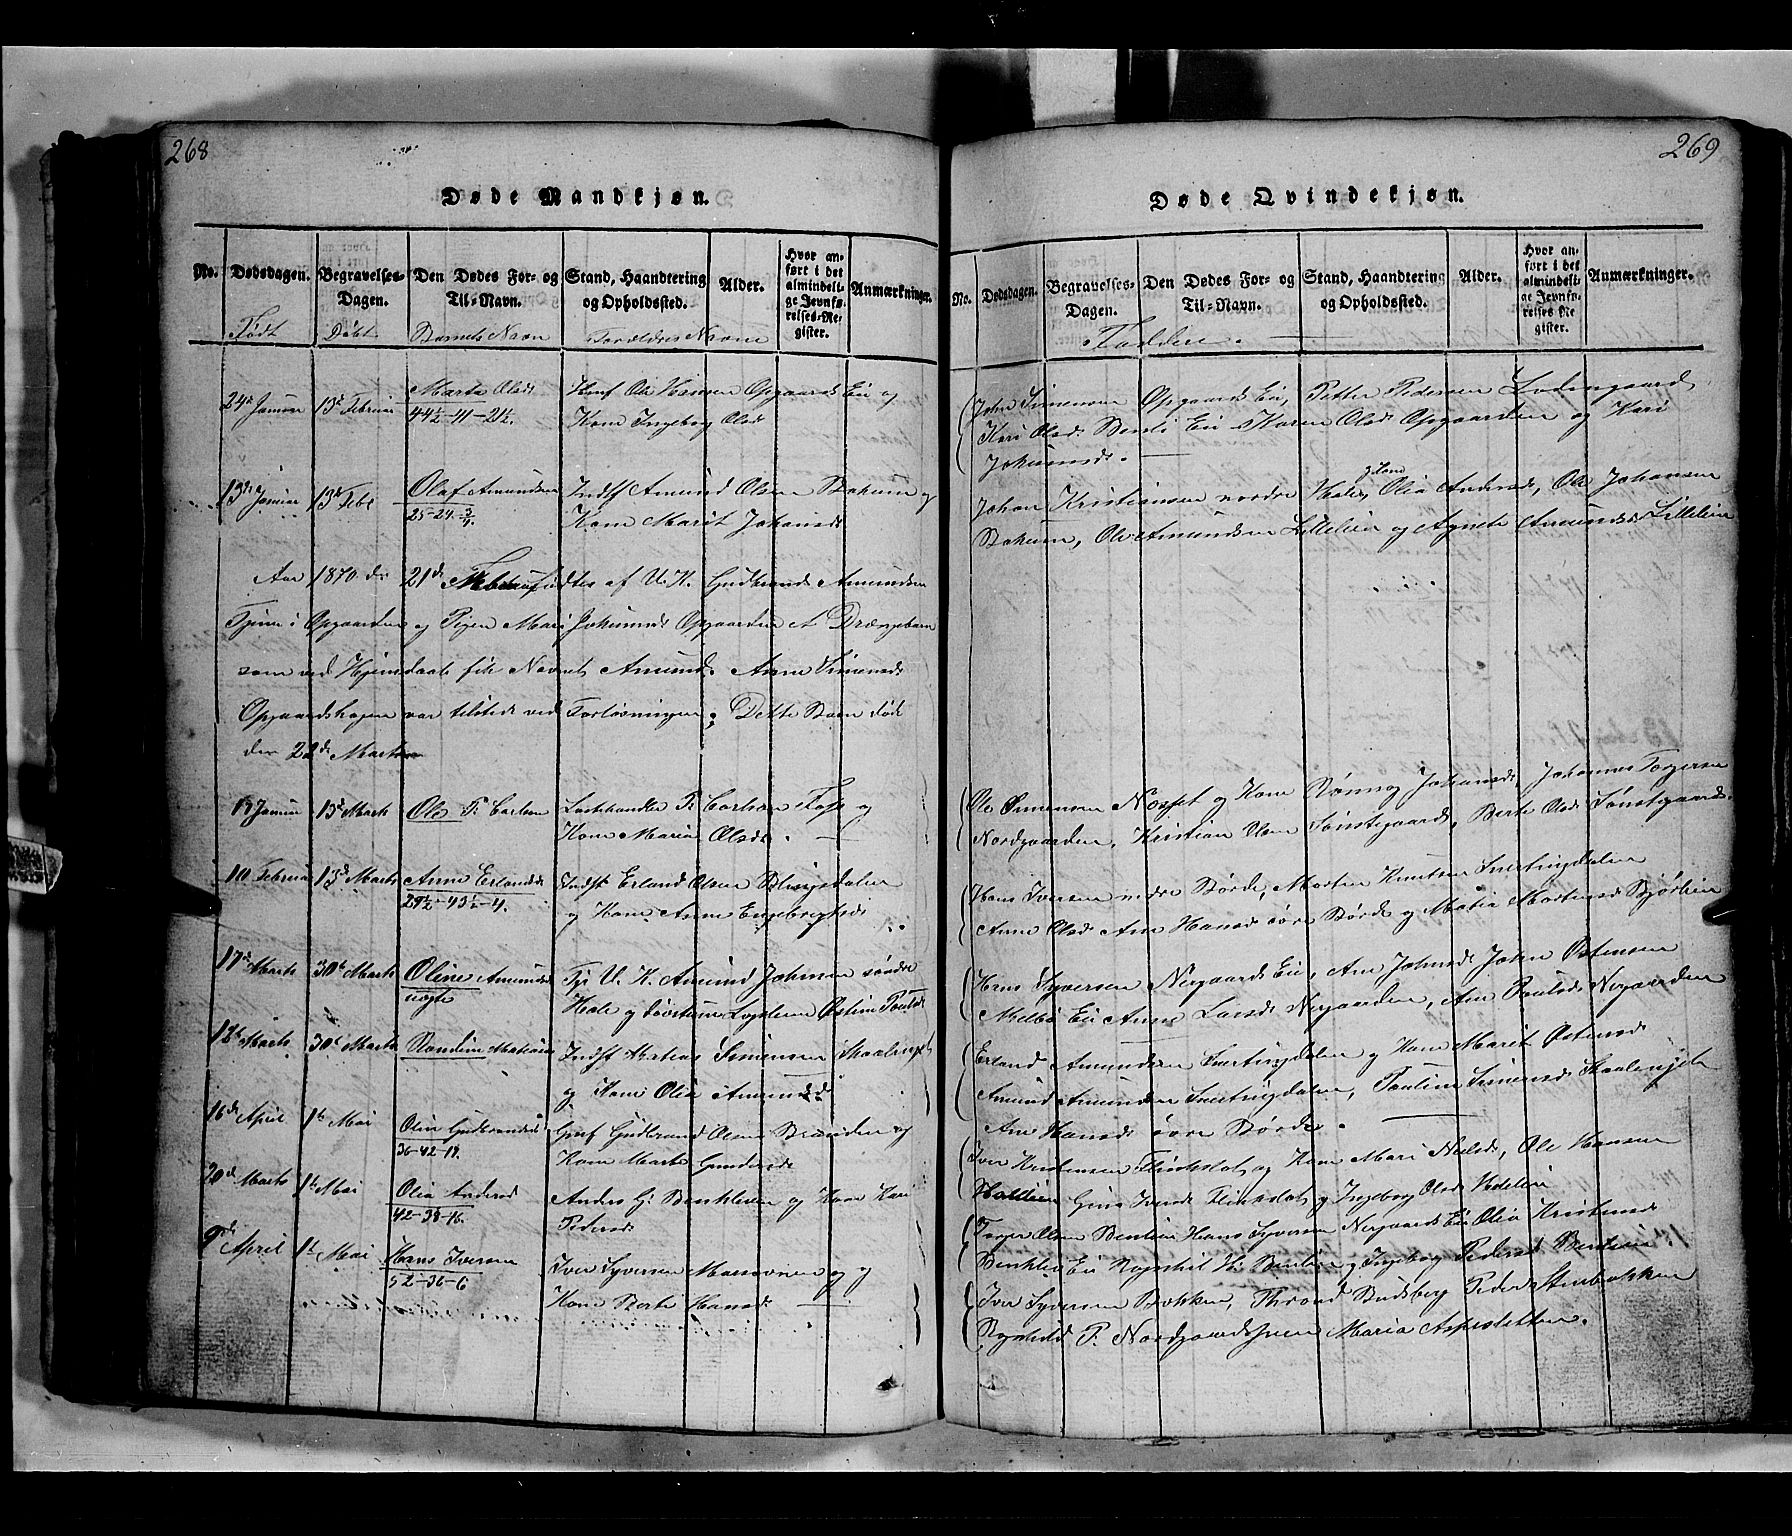 268
Døde Mandkjøn.
No.
Dødsdagen.
Begravelses-
Dagen.
Den Dødes For- og
Til-Navn.
Stand, Haandtering
og Opholdssted.
Alder.
Hvor an-
ført i det
almindeli-
ge Jevnfø-
relses-Re-
gister.
Anmærkninger.
Født Døbt Barnets Navn Forældres Navne
24de Januar 13de Februar Marte Olsd Huusf Ole Hansen Opgaards Eie og
44½-11-21½. Kone Ingebog Olsd
13de Januar 13de Feb Olaf Amundsen Indst Amund Olsen Bakum og
25-24¾. Kone Marit Johansd
Aar 1870 den 21de fødtes af U. K. Gudbrand Amundsen
Tjene i Opgaarden og Pigen Mari Johansd Opgaarden et Drængebarn
som ved Hjemdaab fik Navnet Amund. Anne Simensd
Opgaardshagen var tilstede ved Forløsningen; Dette Barn døde
den 22de Marts
Januar 13de Marts Ole P. Carlsen Landhandler P. Carlsen Foss og
Kone Maria Olsd. —
10 Februar 13de Marts Anne Erlandsd Indst Erland Olsen Blingsdalen
29½-43½-4. og Kone Anne Engebrigtsd
17de Marts 30te Marts Oline Amundsd Tje U. K. Amund Johnsen søndre
uægte Hole og Østine Poulsd
12te Marts 30te Marts Randine Matiasd Indst Matias Simensen Skaalengjet
og Kone Olia Amundsd
16de April 1te Mai Olia Gudbrandsd Gmf Gudbrand Olsen Brænden og
36-42-19. Kone Marte Gundersd
20de Marts 1te Mai Olia Andersd Anders G. Benklien og Kone Kari
42-38-16. Pedersd
9de April 1te Mai Hans Iversen Iver Syversen og
52-36-6 Kone Berte Hansd —
269
Døde Qvindekjøn.
No.
Dødsdagen.
Begravelses-
Dagen.
Den Dødes For- og
Til-Navn.
Stand, Haandtering
og Opholdssted.
Alder.
Hvor an-
ført i det
almindeli-
ge Jevnfø-
relses-Re-
gister.
Anmærkninger.
Faddere.
John Simensen Opgaards Eie, Petter Pedersen Lodengaard
Kari Olsd Benli Eie Karen Olsd Opgaarden og Kari
Johansd. —
Johan Kristiansen nordre Hole, og Kone Olia Andersd, Ole Johansen
Bakum, Ole Amundsen Lillelien og Agnete Amundsd Lillelien
Ole Simensen Nosset og Kone Rønnog Johansd, Johannes Torgersen
Nordgaarden, Kristian Tonstegaard, Berte Olsd Tonstegaard.
Hans Iversen nedre Børde, Morten Knutsen Snertingdalen
Anne Olsd Ane Hansd øvre Børde og Matia Mortensd Bjørlien
Hans Syversen Nergaards Eie, Ane Johnsd John Østensen
Melbø Eie Anne Larsd Nergaarden, Ane Paulsd Nergaarden
Erland Amundsen Snertingdalen og Kone Marit Østensd
Amund Amundsen Snertingdalen, Pauline Simensd Skaalengjet
Ane Hansd øvre Børde.
Iver Kristensen Flikslot og Kone Mari Nielsd, Ole Hansen
Gina Iversd Flikslot og Ingebog Olsd
Torger Olsen Benlien Hans Syversen Nergaards Eie Olia Kristensd
Benklie Eie Ragnhil H. Benlien og Ingebog Pedersd Benlien.
Iver Syversen Bakken, Thrond Budsberg Peder Stenbakken
Ragnhild P. Nordgaardshuen Maria Aspesletten.